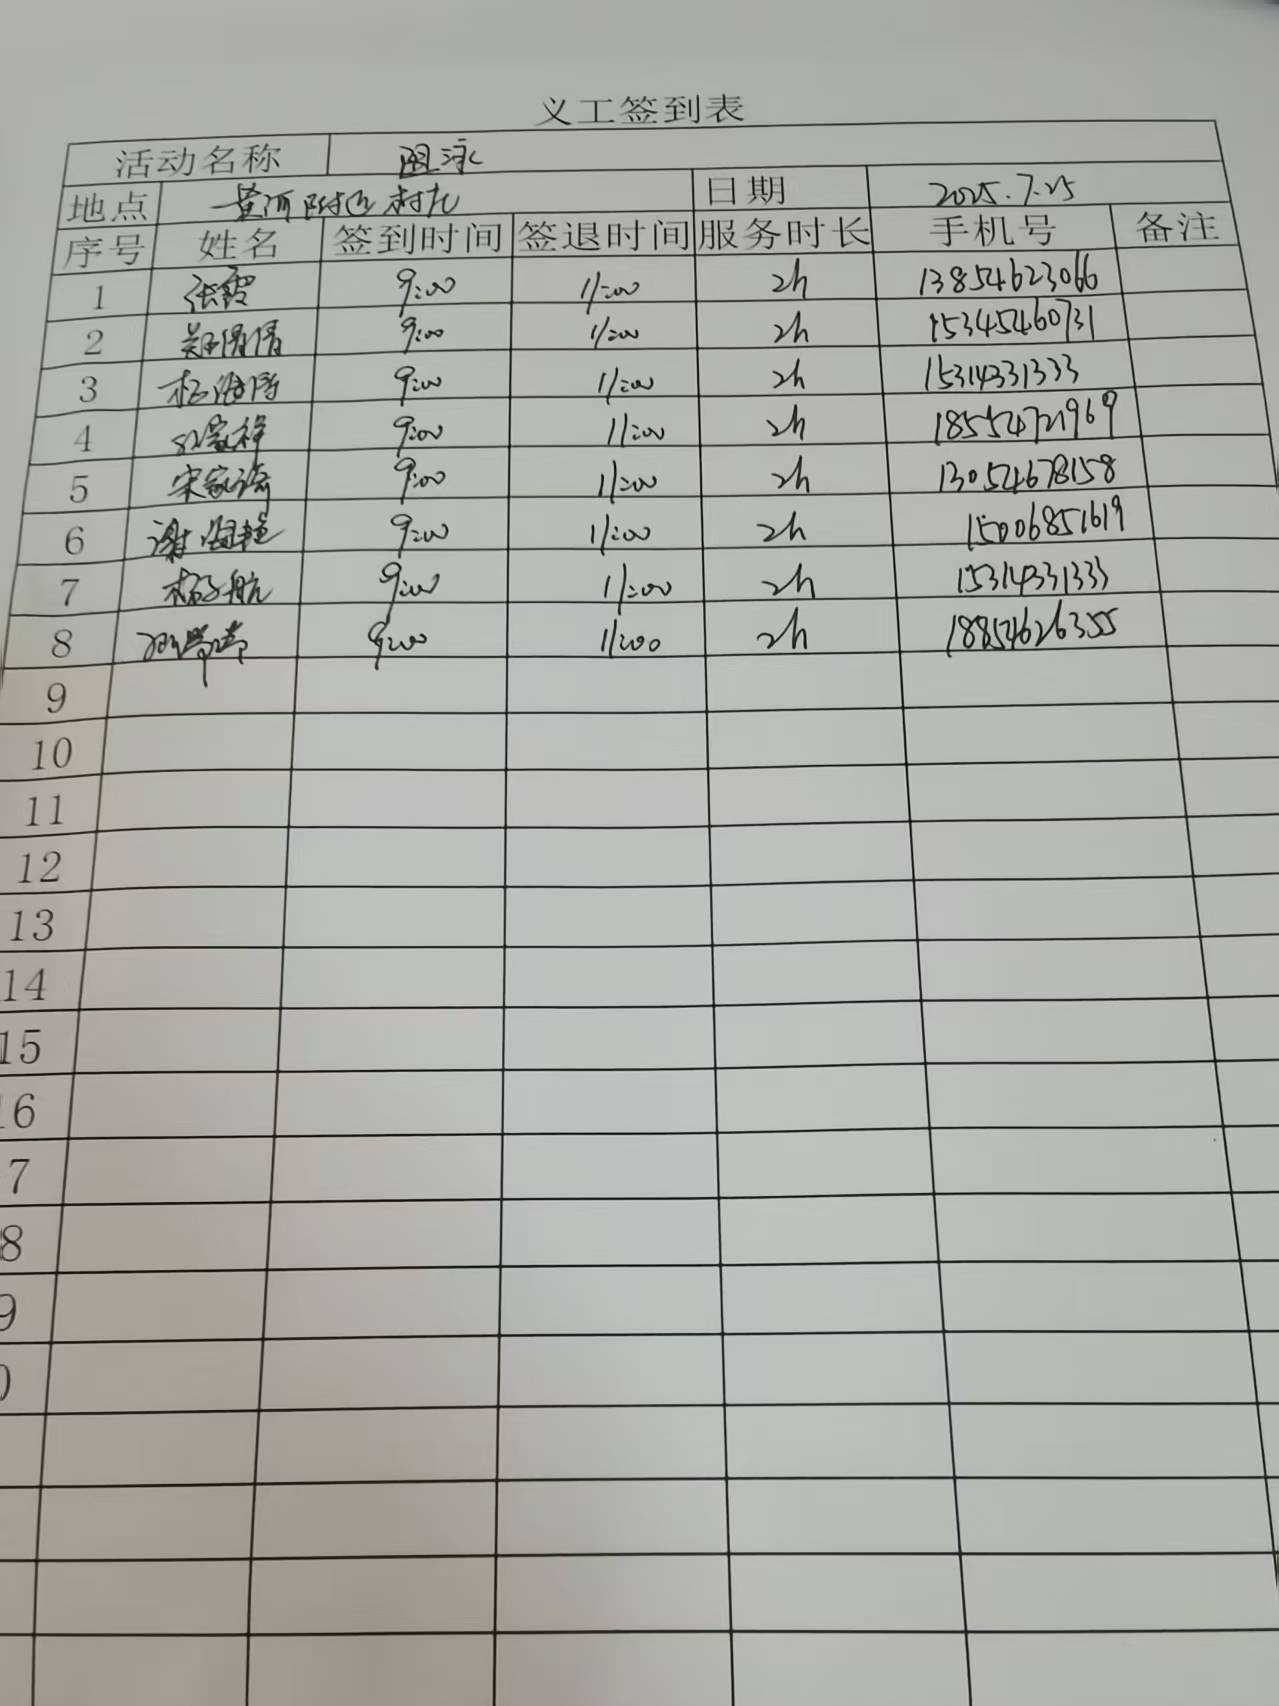 义工签到表
活动名称 阻泳
地点 黄河附近村九 日期 2025.7.25
序号 姓名 签到时间 签退时间 服务时长 手机号 备注
1 张霞 9:00 11:00 2h 13854623066
2 郑倩倩 9:00 11:00 2h 15345460731
3 9:00 11:00 2h 15314331333
4 9:00 11:00 2h 18554721969
5 宋家 9:00 11:00 2h 13054678158
6 谢海艳 9:00 11:00 2h 15006851619
7 杨子航 9:00 11:00 2h 15314331333
8 9:00 11:00 2h 18854626355
9
10
11
12
13
14
15
16
7
8
9